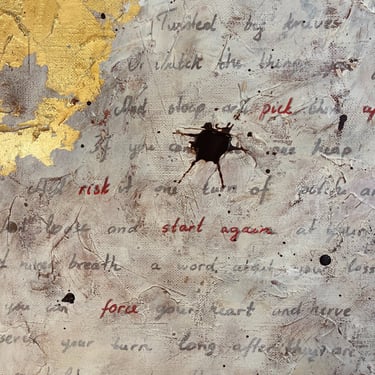 Twisted by knaves
Or watch the things
And stoop and pick
you can one heap
And risk it one turn of
and start again at your
never breath a word about your loss
you can force your heart and nerve
your turn long after they are